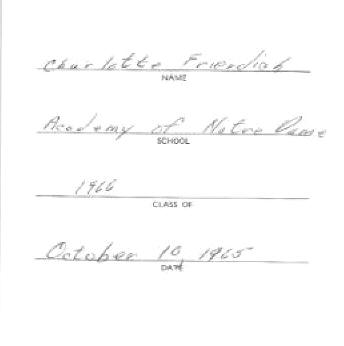 Charlotte Frierdich
NAME
Academy of Notre Dame
SCHOOL
1966
CLASS OF
October 10, 1965
DATE